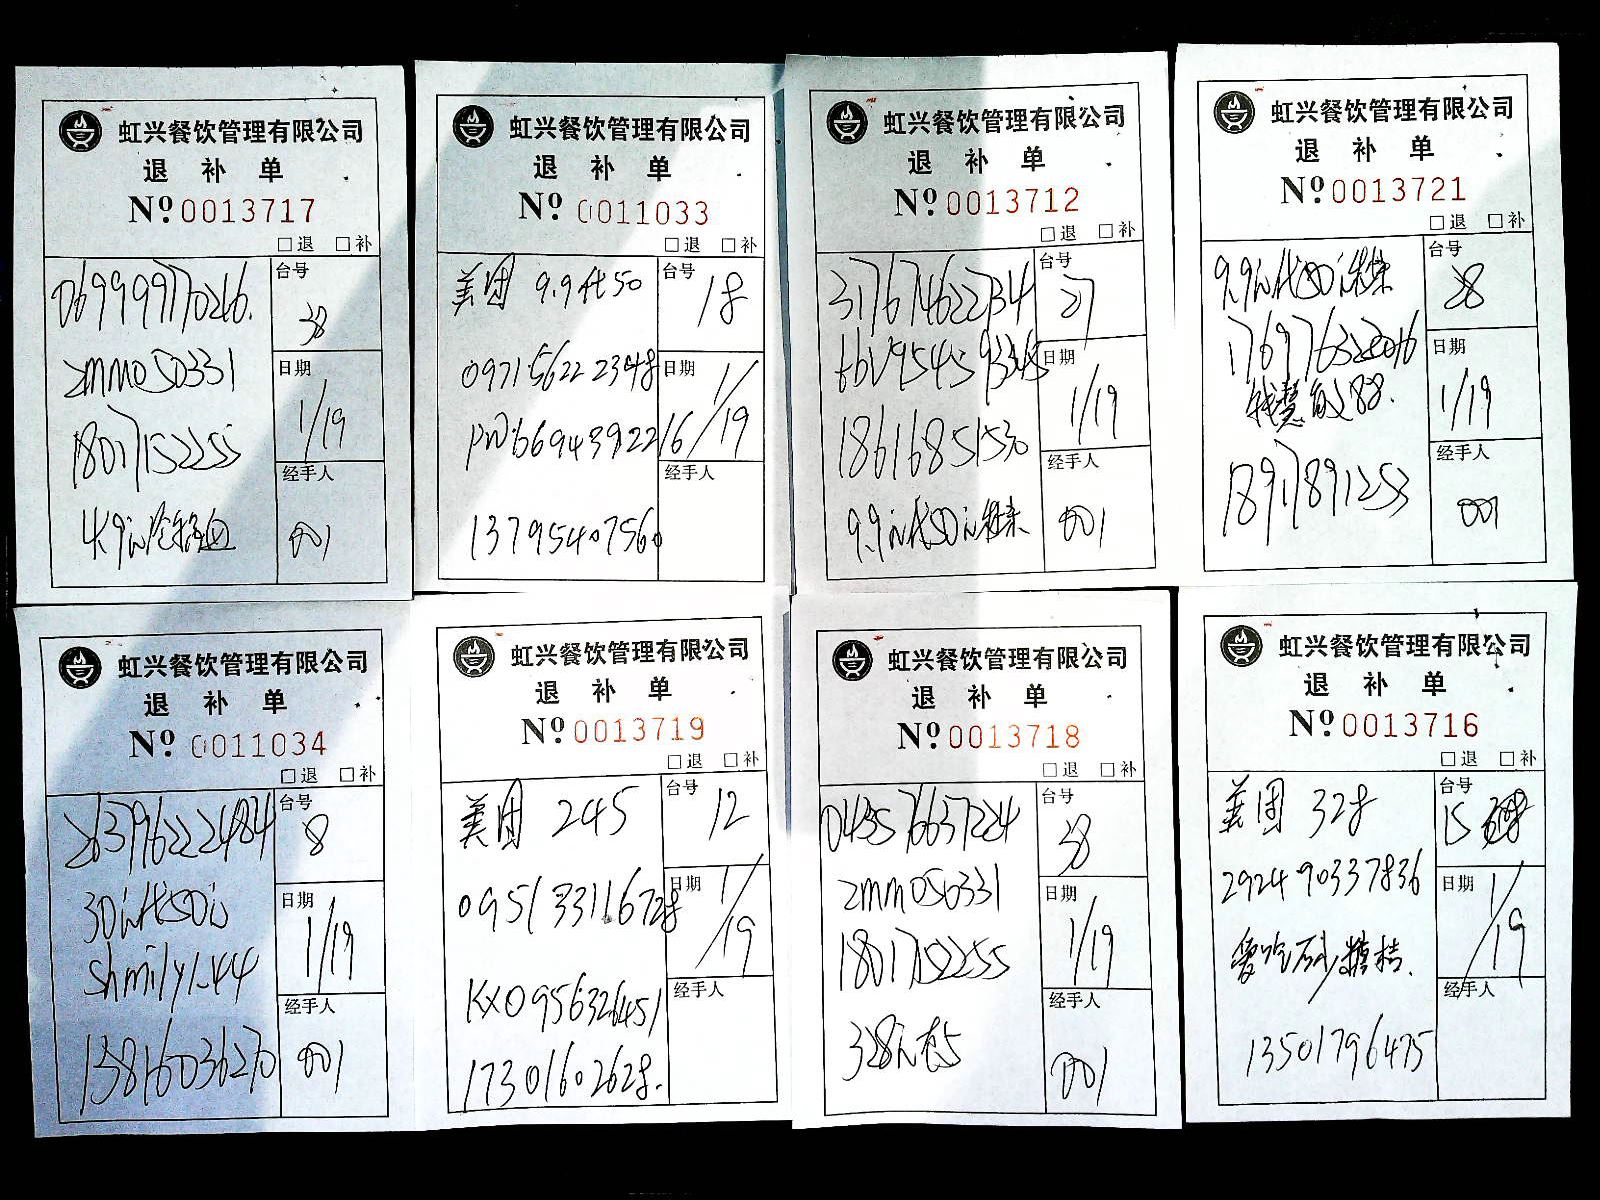 虹兴餐饮管理有限公司
退补单
Nº 0013717
□退 □补
069999770216.
zmm050331
18017152255
台号
38
日期
1/19
经手人
001
虹兴餐饮管理有限公司
退补单
Nº 0011033
□退 □补
美团 9.9代50
097156222348
13795407560
台号
18
日期
1/19
经手人
虹兴餐饮管理有限公司
退补单
Nº 0013712
□退 □补
317674622734
18616851530
台号
27
日期
1/19
经手人
001
虹兴餐饮管理有限公司
退补单
Nº 0013721
□退 □补
18917891253
台号
28
日期
1/19
经手人
001
虹兴餐饮管理有限公司
退补单
Nº 0011034
□退 □补
263796222484
shmily1.44
13816036270
台号
8
日期
1/19
经手人
001
虹兴餐饮管理有限公司
退补单
Nº 0013719
□退 □补
美团 245
095133116728
KX0956326451
17301602628.
台号
12
日期
1/19
经手人
虹兴餐饮管理有限公司
退补单
Nº 0013718
□退 □补
043576637224
zmm050331
18017152255
台号
38
日期
1/19
经手人
001
虹兴餐饮管理有限公司
退补单
Nº 0013716
□退 □补
美团 328
292490337836
爱吃砂糖桔.
13501796475
台号
15
日期
1/19
经手人